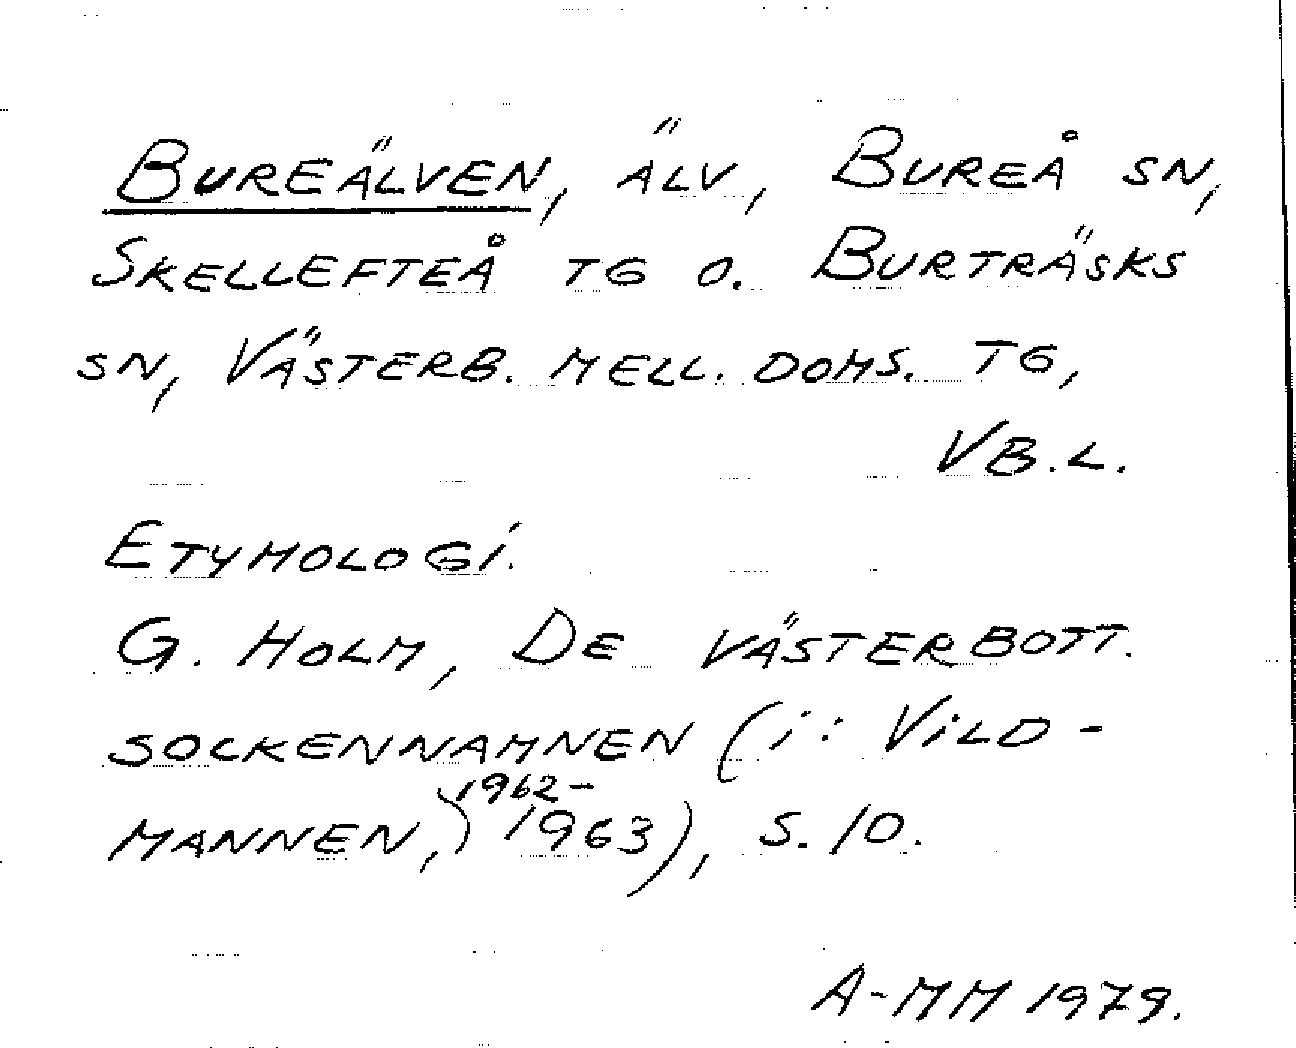 BUREÄLVEN, ÄLV, BUREÅ SN,
SKELLEFTEÅ TG O. BURTRÄSKS
SN, VÄSTERB. MELL. DOMS. TG,
VB.L.
ETYMOLOGI.
G. HOLM, DE VÄSTERBOTT.
SOCKENNAMNEN (i: VILD-
MANNEN, 1962-1963), S. 10.
A-MM 1979.